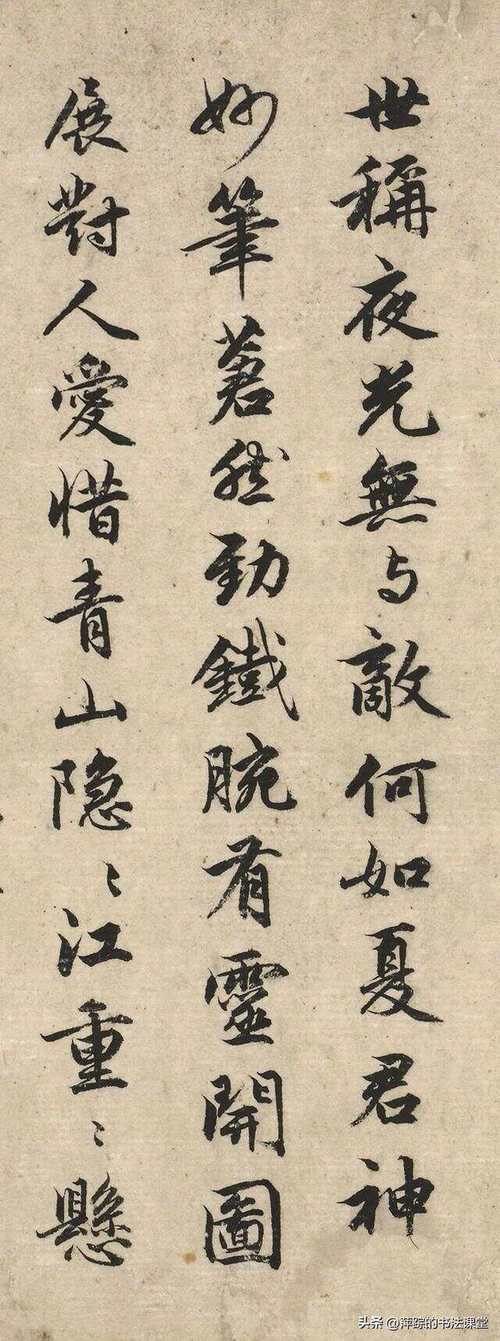 世稱夜光無与敵何如夏君神
妙筆莙然勁鐵腕有靈開圖
展對人愛惜青山隐〻江重〻懸
头条 @萍踪的书法课堂